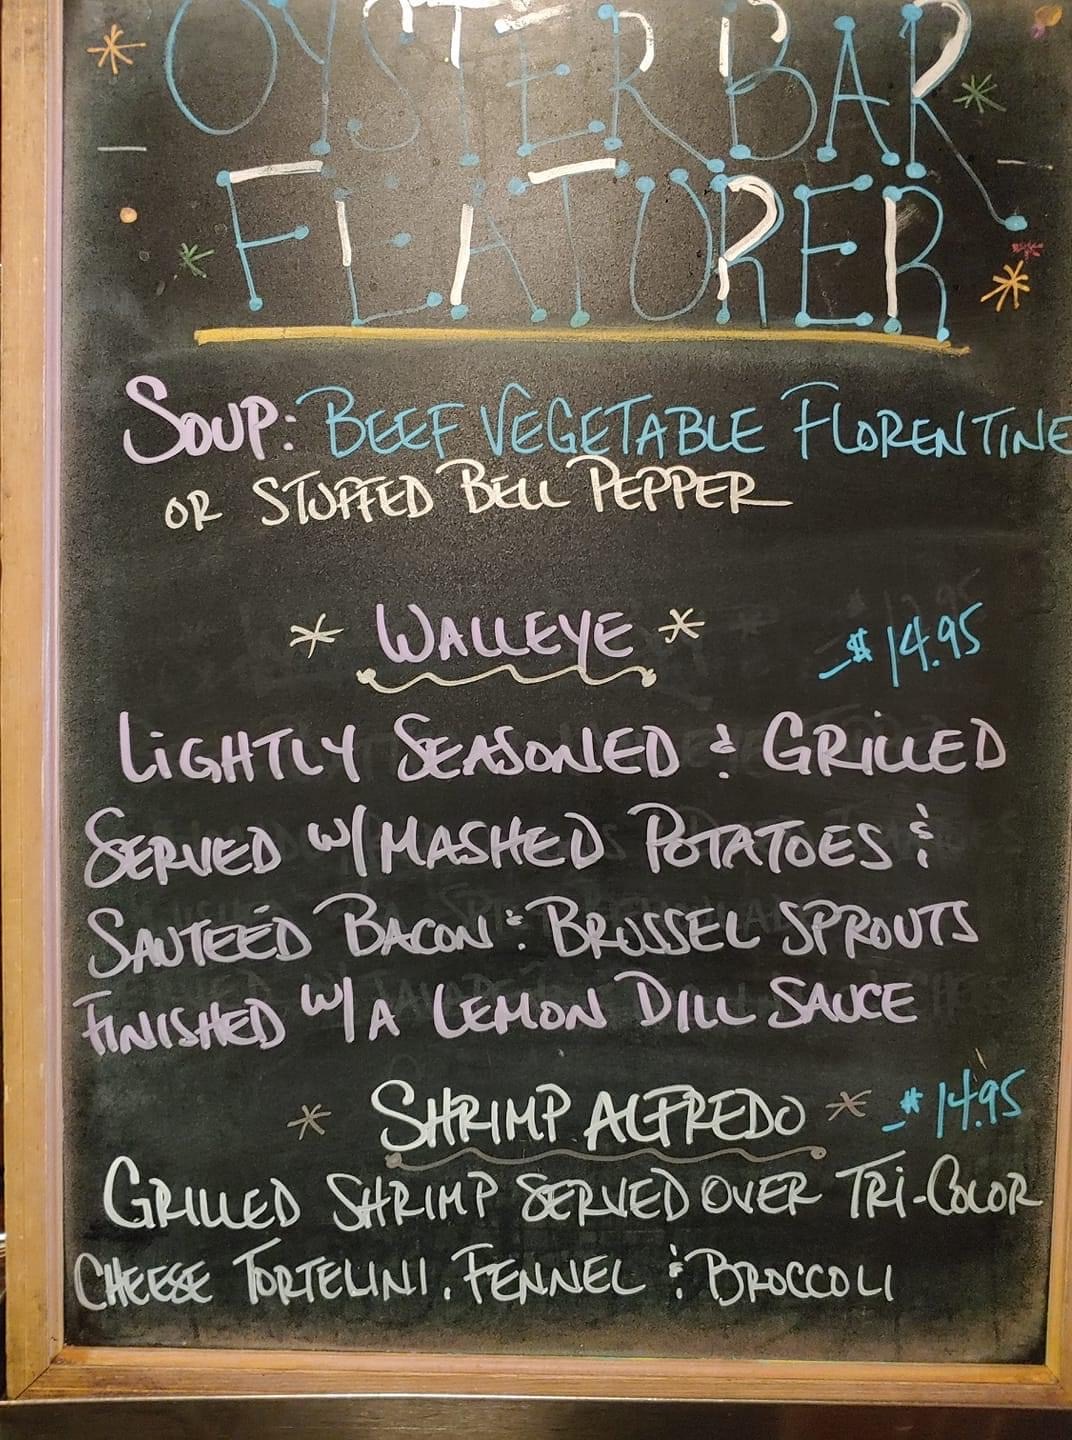 OYSTER BAR
FEATURER
SOUP: BEEF VEGETABLE FLORENTINE
OR STUFFED BELL PEPPER
* WALLEYE * $14.95
LIGHTLY SEASONED & GRILLED
SERVED W/ MASHED POTATOES &
SAUTEÉD BACON & BRUSSEL SPROUTS
FINISHED W/ A LEMON DILL SAUCE
* SHRIMP ALFREDO * $14.95
GRILLED SHRIMP SERVED OVER TRI-COLOR
CHEESE TORTELINI, FENNEL & BROCCOLI